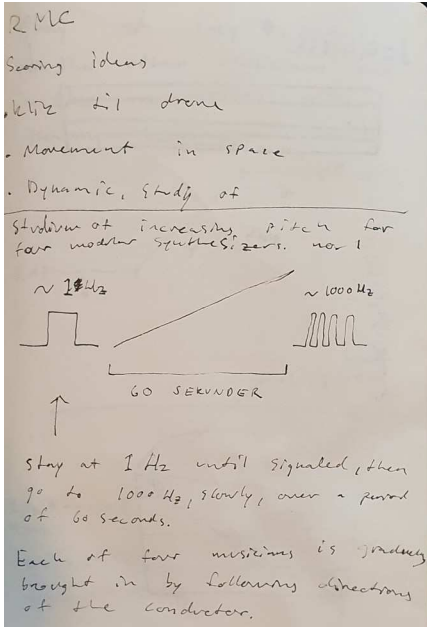 RMC
Scoring ideas
. klik til drone
. Movement in space
. Dynamic, study of
Studium of increasing pitch for
four modular synthesizers. nor 1
~ 1 Hz
~ 1000 Hz
60 SEKUNDER
Stay at 1 Hz until signaled, then
go to 1000 Hz, slowly, over a period
of 60 seconds.
Each of four musicians is gradually
brought in by following directions
of the conductor.